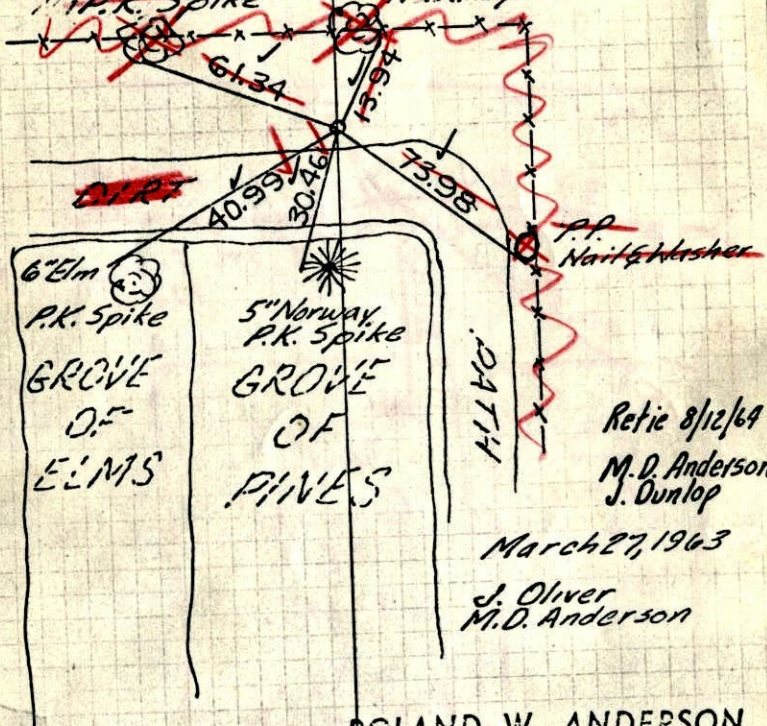 P.K. Spike
61.34
13.94
DIRT
40.99
30.46
73.98
P.P.
Nail & Washer
6" Elm
P.K. Spike
5" Norway
P.K. Spike
GROVE
OF
ELMS
GROVE
OF
PINES
PATH
Retie 8/12/64
M.D. Anderson
J. Dunlop
March 27, 1963
J. Oliver
M.D. Anderson
ROLAND W. ANDERSON